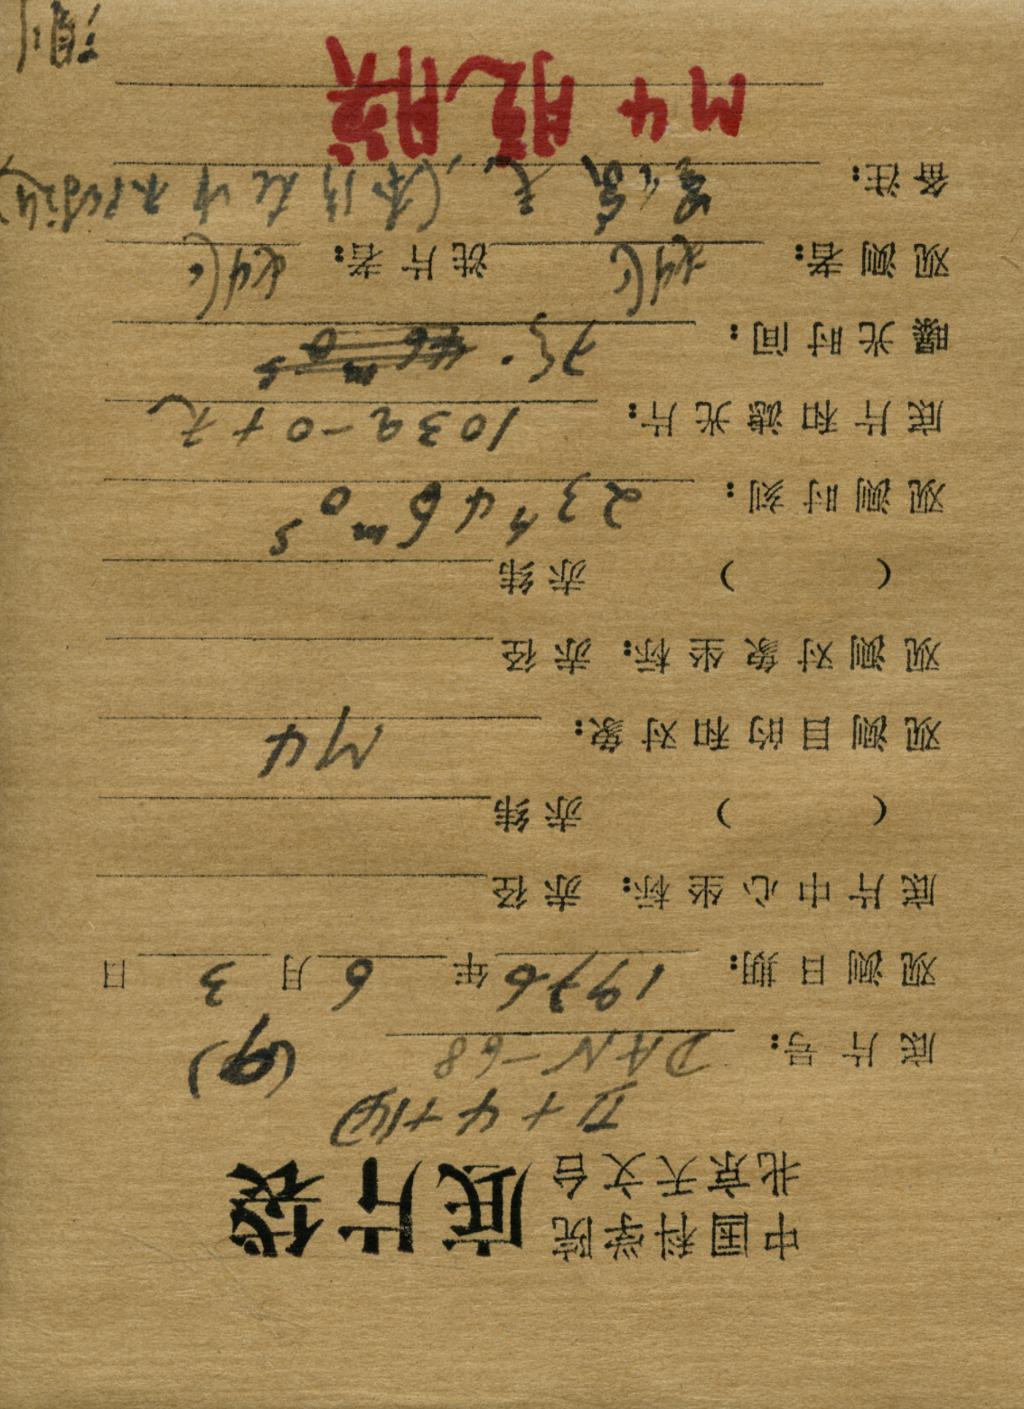 中国科学院
北京天文台
底片袋
II+4+14)
底片号: DAN-68 (9)
观测日期: 1976年6月3日
底片中心坐标: 赤径
( ) 赤纬
观测目的和对象: M4
观测对象坐标: 赤径
( ) 赤纬
观测时刻: 23h46m0s
底片和滤光片: 103a-0+无
曝光时间: 46m0s
观测者: 洗片者:
备注:
M4 脱膜